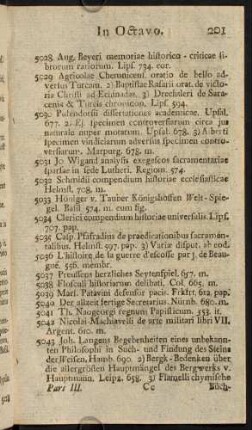 In Octavo. 201
5028 Aug. Beyeri memoriae historico - criticae li-
brorum rariorum. Lips. 734. cor.
5029 Agricolae Chemnicens oratio de bello ad-
versus Turcam. 2) Baptistae Rasarii orat. de victo-
ria Christi ad Echinadas. 3) Drechsleri de Sara-
cenis & Turcis chronicon. Lips. 594.
5030 Pufendorfii dissertationes academicae. Upsal.
677. 2. Ej. specimen controversiarum circa jus
naturale nuper motarum. Upsal. 678. 3) Alberti
specimen vindiciarum adversus specimen contro-
versiarum. Marpurg. 678. m.
5031 Jo Wigand analysis exegeseos sacramentariae
sparsae in fide Lutheri. Regiom. 574.
5032 Schmidii compendium historiae ecclesiasticae
Helmst. 708. m.
5033 Höniger v. Tauber Königshoffen Welt - Spie-
gel. Basil 574. m. cum fig.
5034 Clerici compendium historiae universalis Lips.
707. pap.
5035 Casp. Pfaffradius de praedicationibus sacramen-
talibus. Helmst. 597. pap. 3) Variae disput. ab eod.
5036 L'histoire de la guerre d'escosse par J. de Beau-
gué. 556. membr.
5037 Preussens herzliches Seytenspiel. 697. m.
5038 Flosculi historicorum delibati. Col. 665. m.
5039 Marf. Patavini defensio pacis. Frkfrt. 612. pap.
5040 Der allzeit fertige Secretarius. Nürnb. 680. m.
5041 Th. Naogeorgi regnum Papisticum. 553. it.
5042 Nicolai Machiavelli de arte militari libri VII.
Argent. 610. m.
5043 Joh. Langens Begebenheiten eines unbekann-
ten Philosophi in Such- und Findung des Steins
der Weisen, Hamb. 690. 2) Bergk - Bedenken über
die allergrösten Hauptmängel des Bergwerks v.
Hauptmann, Leipz. 658. 3) Flamelli chymische
Pars III. Cc Büch-